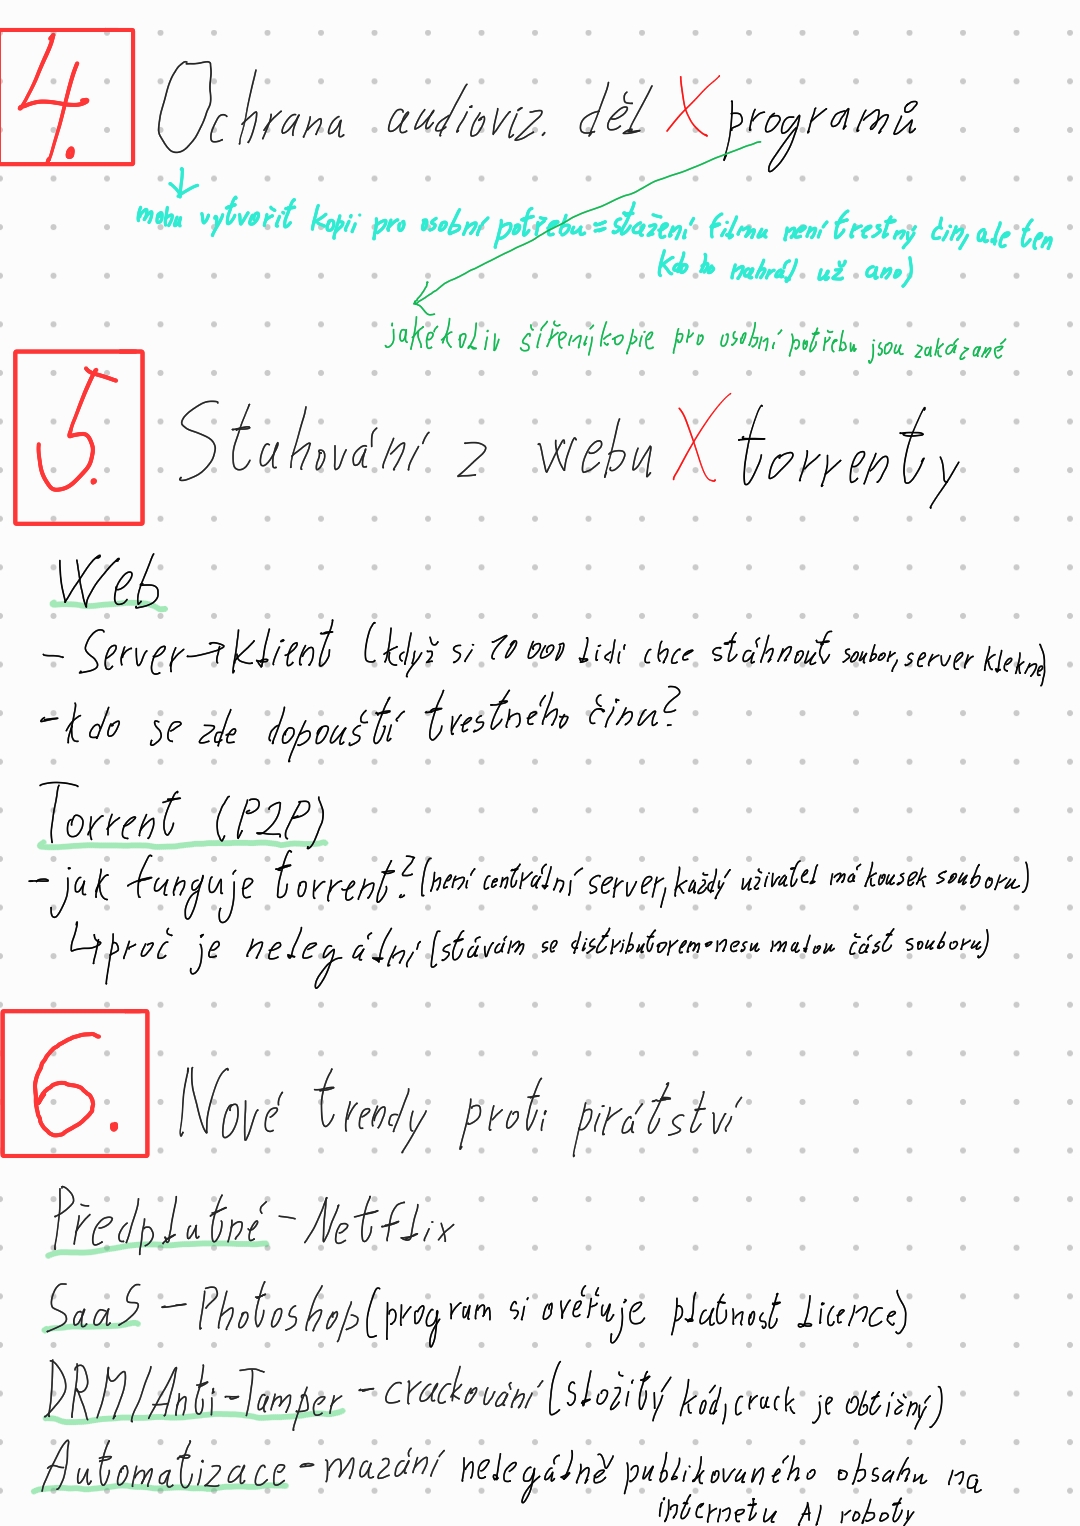 4.
Ochrana audioviz. děl X programů
mohu vytvořit kopii pro osobní potřebu = stažení filmu není trestný čin, ale ten
kdo ho nahrál už ano)
jakékoliv šíření/kopie pro osobní potřebu jsou zakázané
5.
Stahování z webu X torrenty
Web
- Server → klient (když si 10 000 lidí chce stáhnout soubor, server klekne)
- kdo se zde dopouští trestného činu?
Torrent (P2P)
- jak funguje torrent? (není centrální server, každý uživatel má kousek souboru)
↳ proč je nelegální (stávám se distributorem - nesu malou část souboru)
6.
Nové trendy proti pirátství
Předplatné - Netflix
SaaS - Photoshop (program si ověřuje platnost licence)
DRM/Anti-Tamper - crackování (složitý kód, crack je obtížný)
Automatizace - mazání nelegálně publikovaného obsahu na
internetu AI roboty